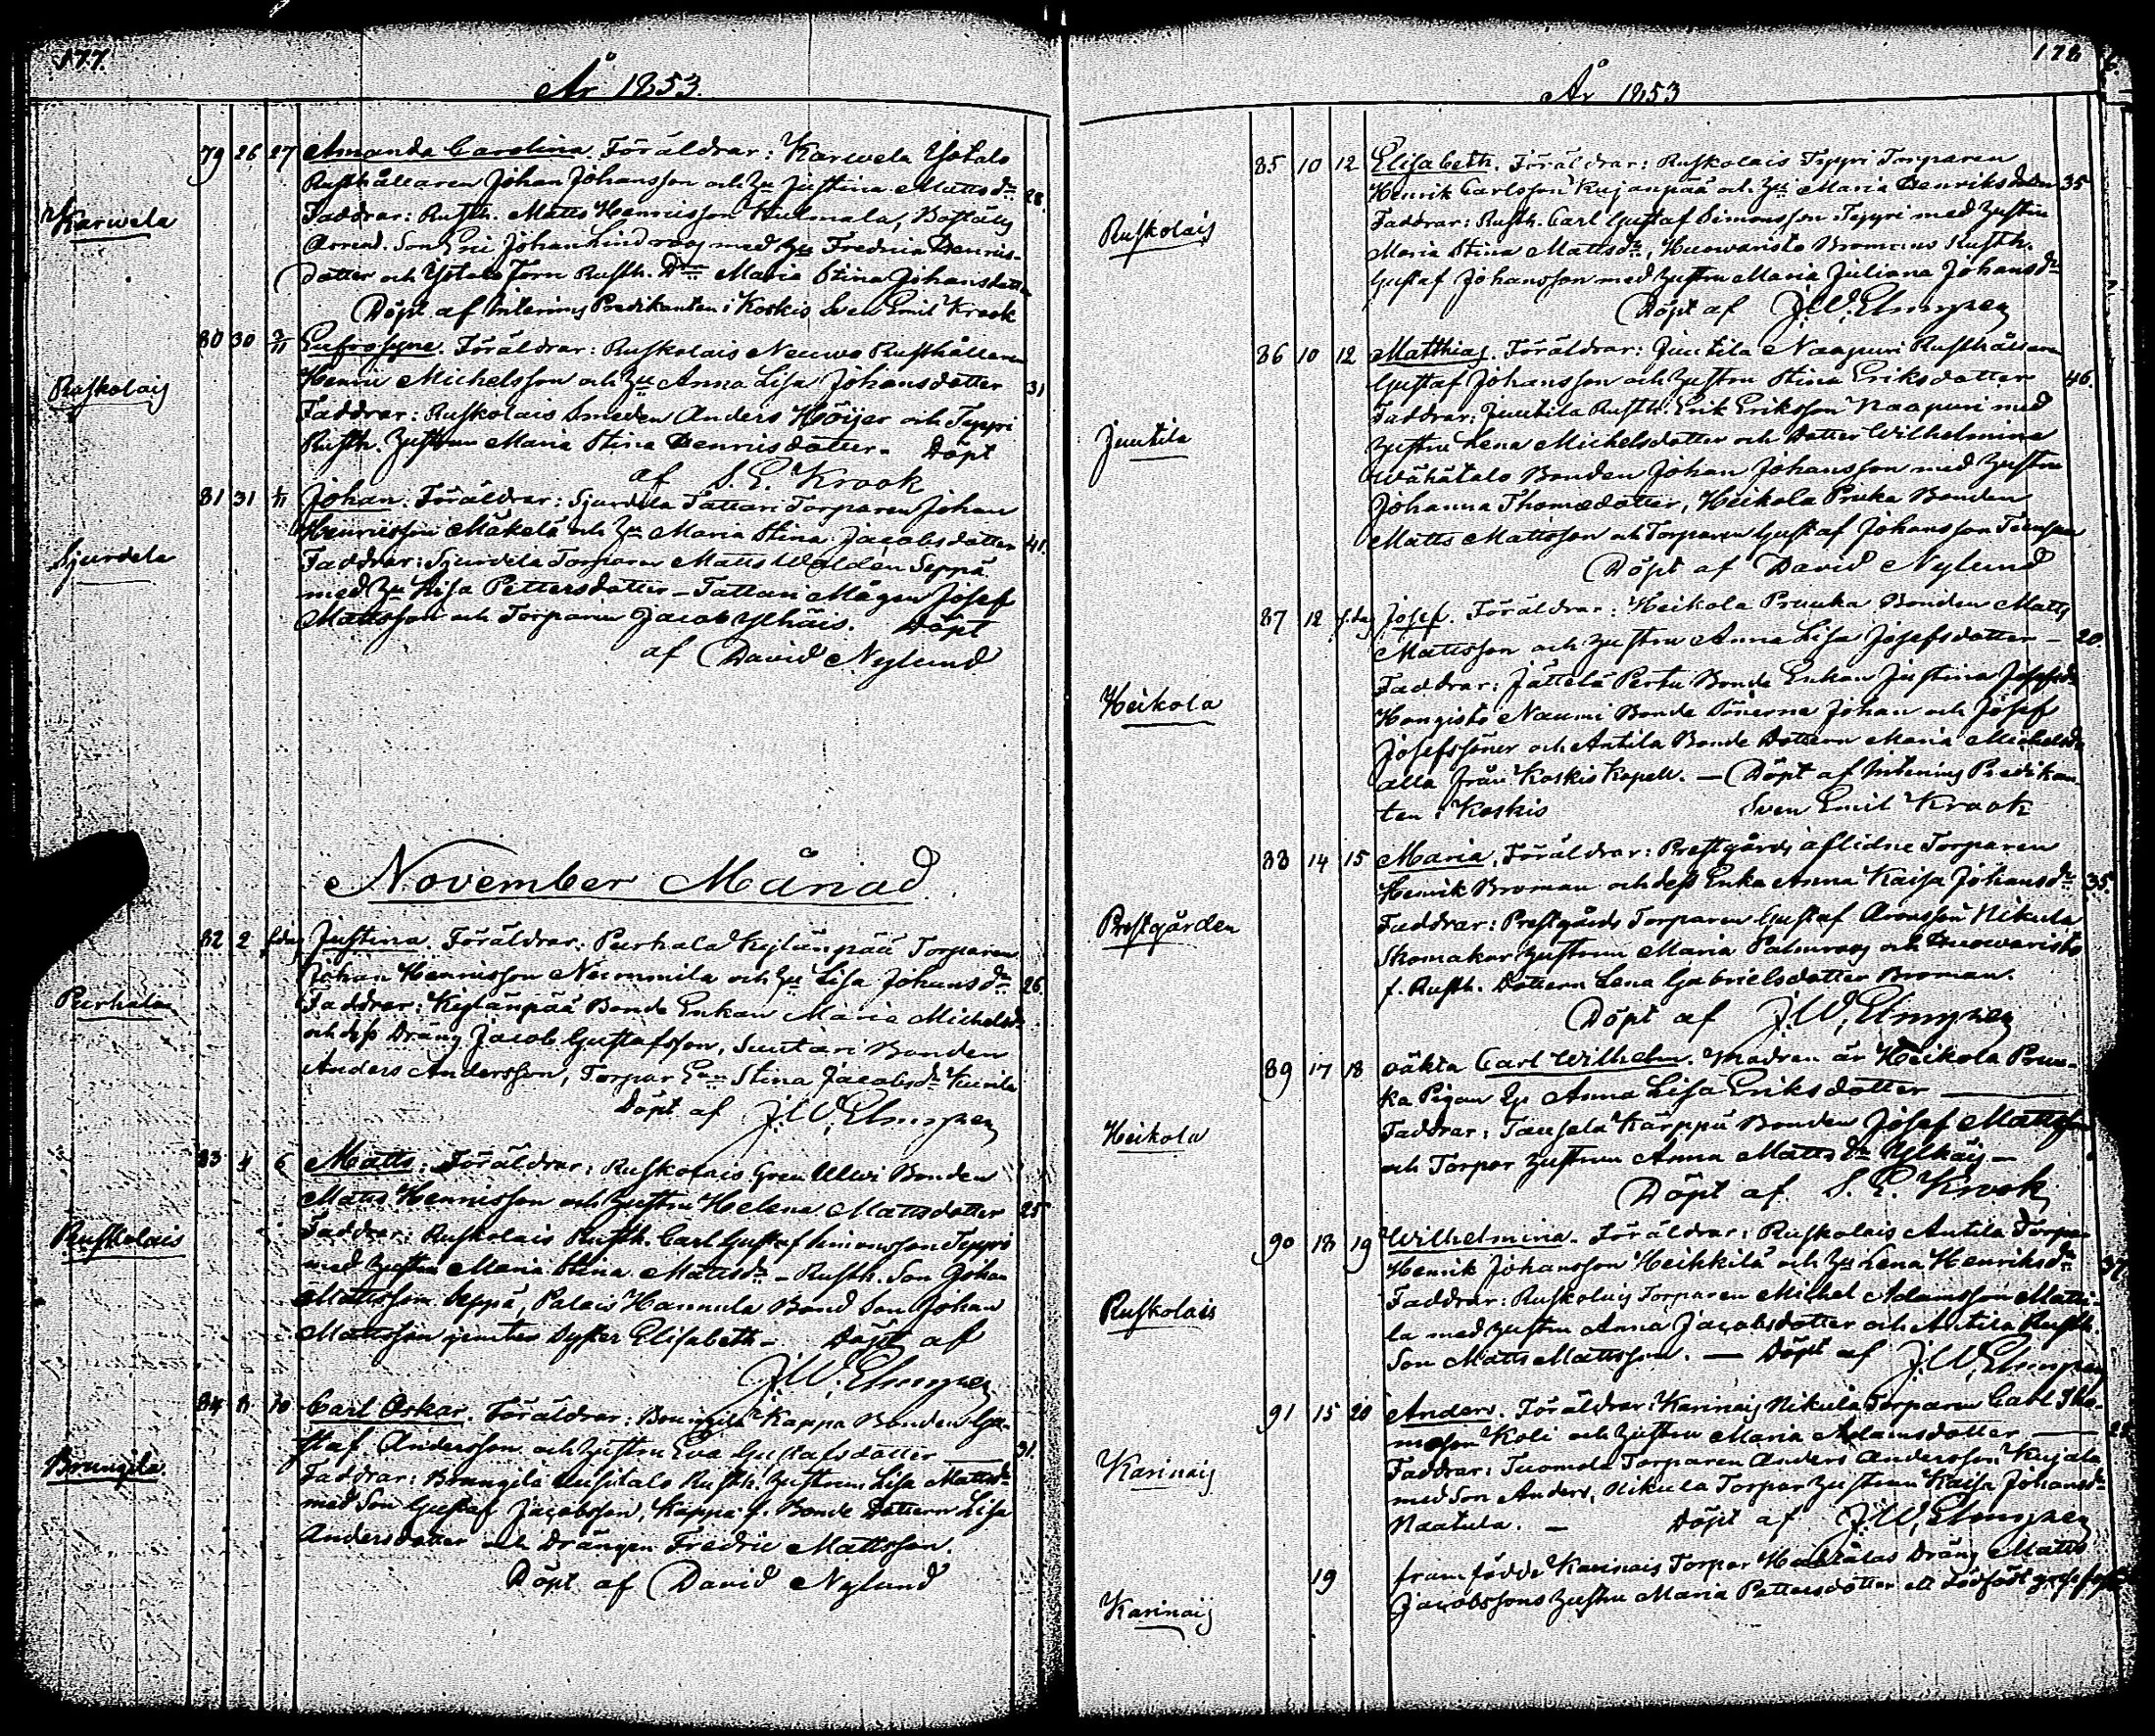 177.
År 1853.
Karwela
79 26 27 Amanda Carolina. Föräldrar: Karwela Ylötalo
Rusthållaren Johan Johansson och Hu Justina Mattsdr 28.
Faddrar: Rusth. Matts Henricsson Huhmala, Boställs
Arrend. Son Eric Johan Lindroos med Hu Fredrica Henrics-
dotter och Ylötalo Torp Rusth. Dr Maria Stina Johansdotter
Döpt af Interims Predikanten i Koskis Sven Emil Krook
Ruskolais
80 30 2/11 Eufrosyne. Föräldrar: Ruskolais Neuwo Rusthållaren
Henric Michelsson och Hu Anna Lisa Johansdotter 31
Faddrar: Ruskolais Smeden Anders Höijer och Teppri
Rusth. Hustrun Maria Stina Henricsdotter. Döpt
af S. E. Krook
Sjurdela
81 31 1/11 Johan. Föräldrar: Sjurdela Tattari Torparen Johan
Henricsson Mäkelä och Hu Maria Stina Jacobsdotter 41.
Faddrar: Sjurdela Torparen Matts Waldén Seppä
med Hu Lisa Pettersdotter – Tattari Mågen Josef
Mattsson och Torparen Jacob Ylhäis. Döpt
af David Nylund
November Månad.
Purhala
82 2 s.dag Justina. Föräldrar: Purhala Kylänpää Torparen
Johan Henricsson Neuonmila och Hu Lisa Johansdr 26.
Faddrar: Kylänpää Bonde Enkan Maria Michelsdr
och dess Dräng Jacob Gustafsson, Suutari Bonden
Anders Andersson, Torpar En Stina Jacobsdr Kuusila
Döpt af J. W. Elmgren
Ruskolais
83 4 6 Matts. Föräldrar: Ruskolais Gren Ulwi Bonden
Matts Henricsson och Hustru Helena Mattsdotter 25
Faddrar: Ruskolais Rusth. Carl Gustaf Simonsson Teppri
med Hustru Maria Stina Mattsdr – Rusth. Son Johan
Mattsson Seppä, Palais Hannula Bond Son Johan
Mattsson jemte Syster Elisabeth – Döpt af
J. W. Elmgren
Brungila
84 8 10 Carl Oskar. Föräldrar: Brungila Kappa Bonden Gu-
staf Andersson och Hustru Eva Gustafsdotter 31.
Faddrar: Brungila Uusitalo Rusth. Hustrun Lisa Mattsdr
med Son Gustaf Jacobsson, Kappa f. Bonde Dottern Lisa
Andersdotter och Drängen Fredric Mattsson.
Döpt af David Nylund
178
År 1853
Ruskolais
85 10 12 Elisabeth. Föräldrar: Ruskolais Teppri Torparen
Henrik Carlsson Kujanpää och Hu Maria Henriksdotter 35
Faddrar: Rusth. Carl Gustaf Simonsson Teppri med Hustru
Maria Stina Mattsdr, Huowaristo Bromans Rusth.
Gustaf Johansson med Hustru Maria Juliana Johansdr
Döpt af J. W. Elmgren
Juutila
86 10 12 Matthias. Föräldrar: Juutila Naapuri Rusthållaren
Gustaf Johansson och Hustru Stina Eriksdotter 46.
Faddrar: Juutila Rusth. Erik Eriksson Naapuri med
Hustru Lena Michelsdotter och Dotter Wilhelmina
Wähätalo Bonden Johan Johansson med Hustru
Johanna Thomædotter, Heikola Pruka Bonden
Matts Mattsson och Torparen Gustaf Johansson
Döpt af David Nylund
Heikola
87 12 s.dag Josef. Föräldrar: Heikola Pruuka Bonden Matts
Mattsson och Hustru Anna Lisa Josefsdotter – 20.
Faddrar: Jättelä Pertu Bonde Enkan Justina Josefsdr
Hongisto Naumi Bonde Sönerna Johan och Josef
Josefssöner och Antila Bonde Dottern Maria Michelsdr
alla från Koskis Kapell. – Döpt af Interims Predikan-
ten i Koskis Sven Emil Krook
Prestgården
88 14 15 Maria. Föräldrar: Prestgårds aflidne Torparen
Henrik Broman och dess Enka Anna Kaisa Johansdr 35.
Faddrar: Prestgårds Torparen Gustaf Aronsson Nikula
Skomakar Hustrun Maria Palmroos och Huowaristo
f. Rusth. Dottern Lena Gabrielsdotter Broman.
Döpt af J. W. Elmgren
Heikola
89 17 18 oäkta Carl Wilhelm. Modren är Heikola Pruu-
ka Pigan Anna Lisa Eriksdotter
Faddrar: Tausela Karppa Bonden Josef Mattsson
och Torpar Hustrun Anna Mattsdr Ylhäis –
Döpt af S. E. Krook
Ruskolais
90 18 19 Wilhelmina. Föräldrar: Ruskolais Antila Torpar
Henrik Johansson Heikkilä och Hu Lena Henriksdr 37
Faddrar: Ruskolais Torparen Michel Adamsson Matti-
la med Hustru Anna Jacobsdotter och Antila Rusth.
Son Matts Mattsson. – Döpt af J. W. Elmgren
Karinais
91 15 20 Anders. Föräldrar: Karinais Nikula Torparen Carl Tho-
masson Koli och Hustru Maria Adamsdotter
Faddrar: Tuomola Torparen Anders Andersson Kujala
med Son Anders, Nikula Torpar Hustrun Kaisa Johansdr
Naatula. – Döpt af J. W. Elmgren
Karinais
19 framfödde Karinais Torpar Dräng Matts
Jacobssons Hustru Maria Pettersdotter ett dödfödt